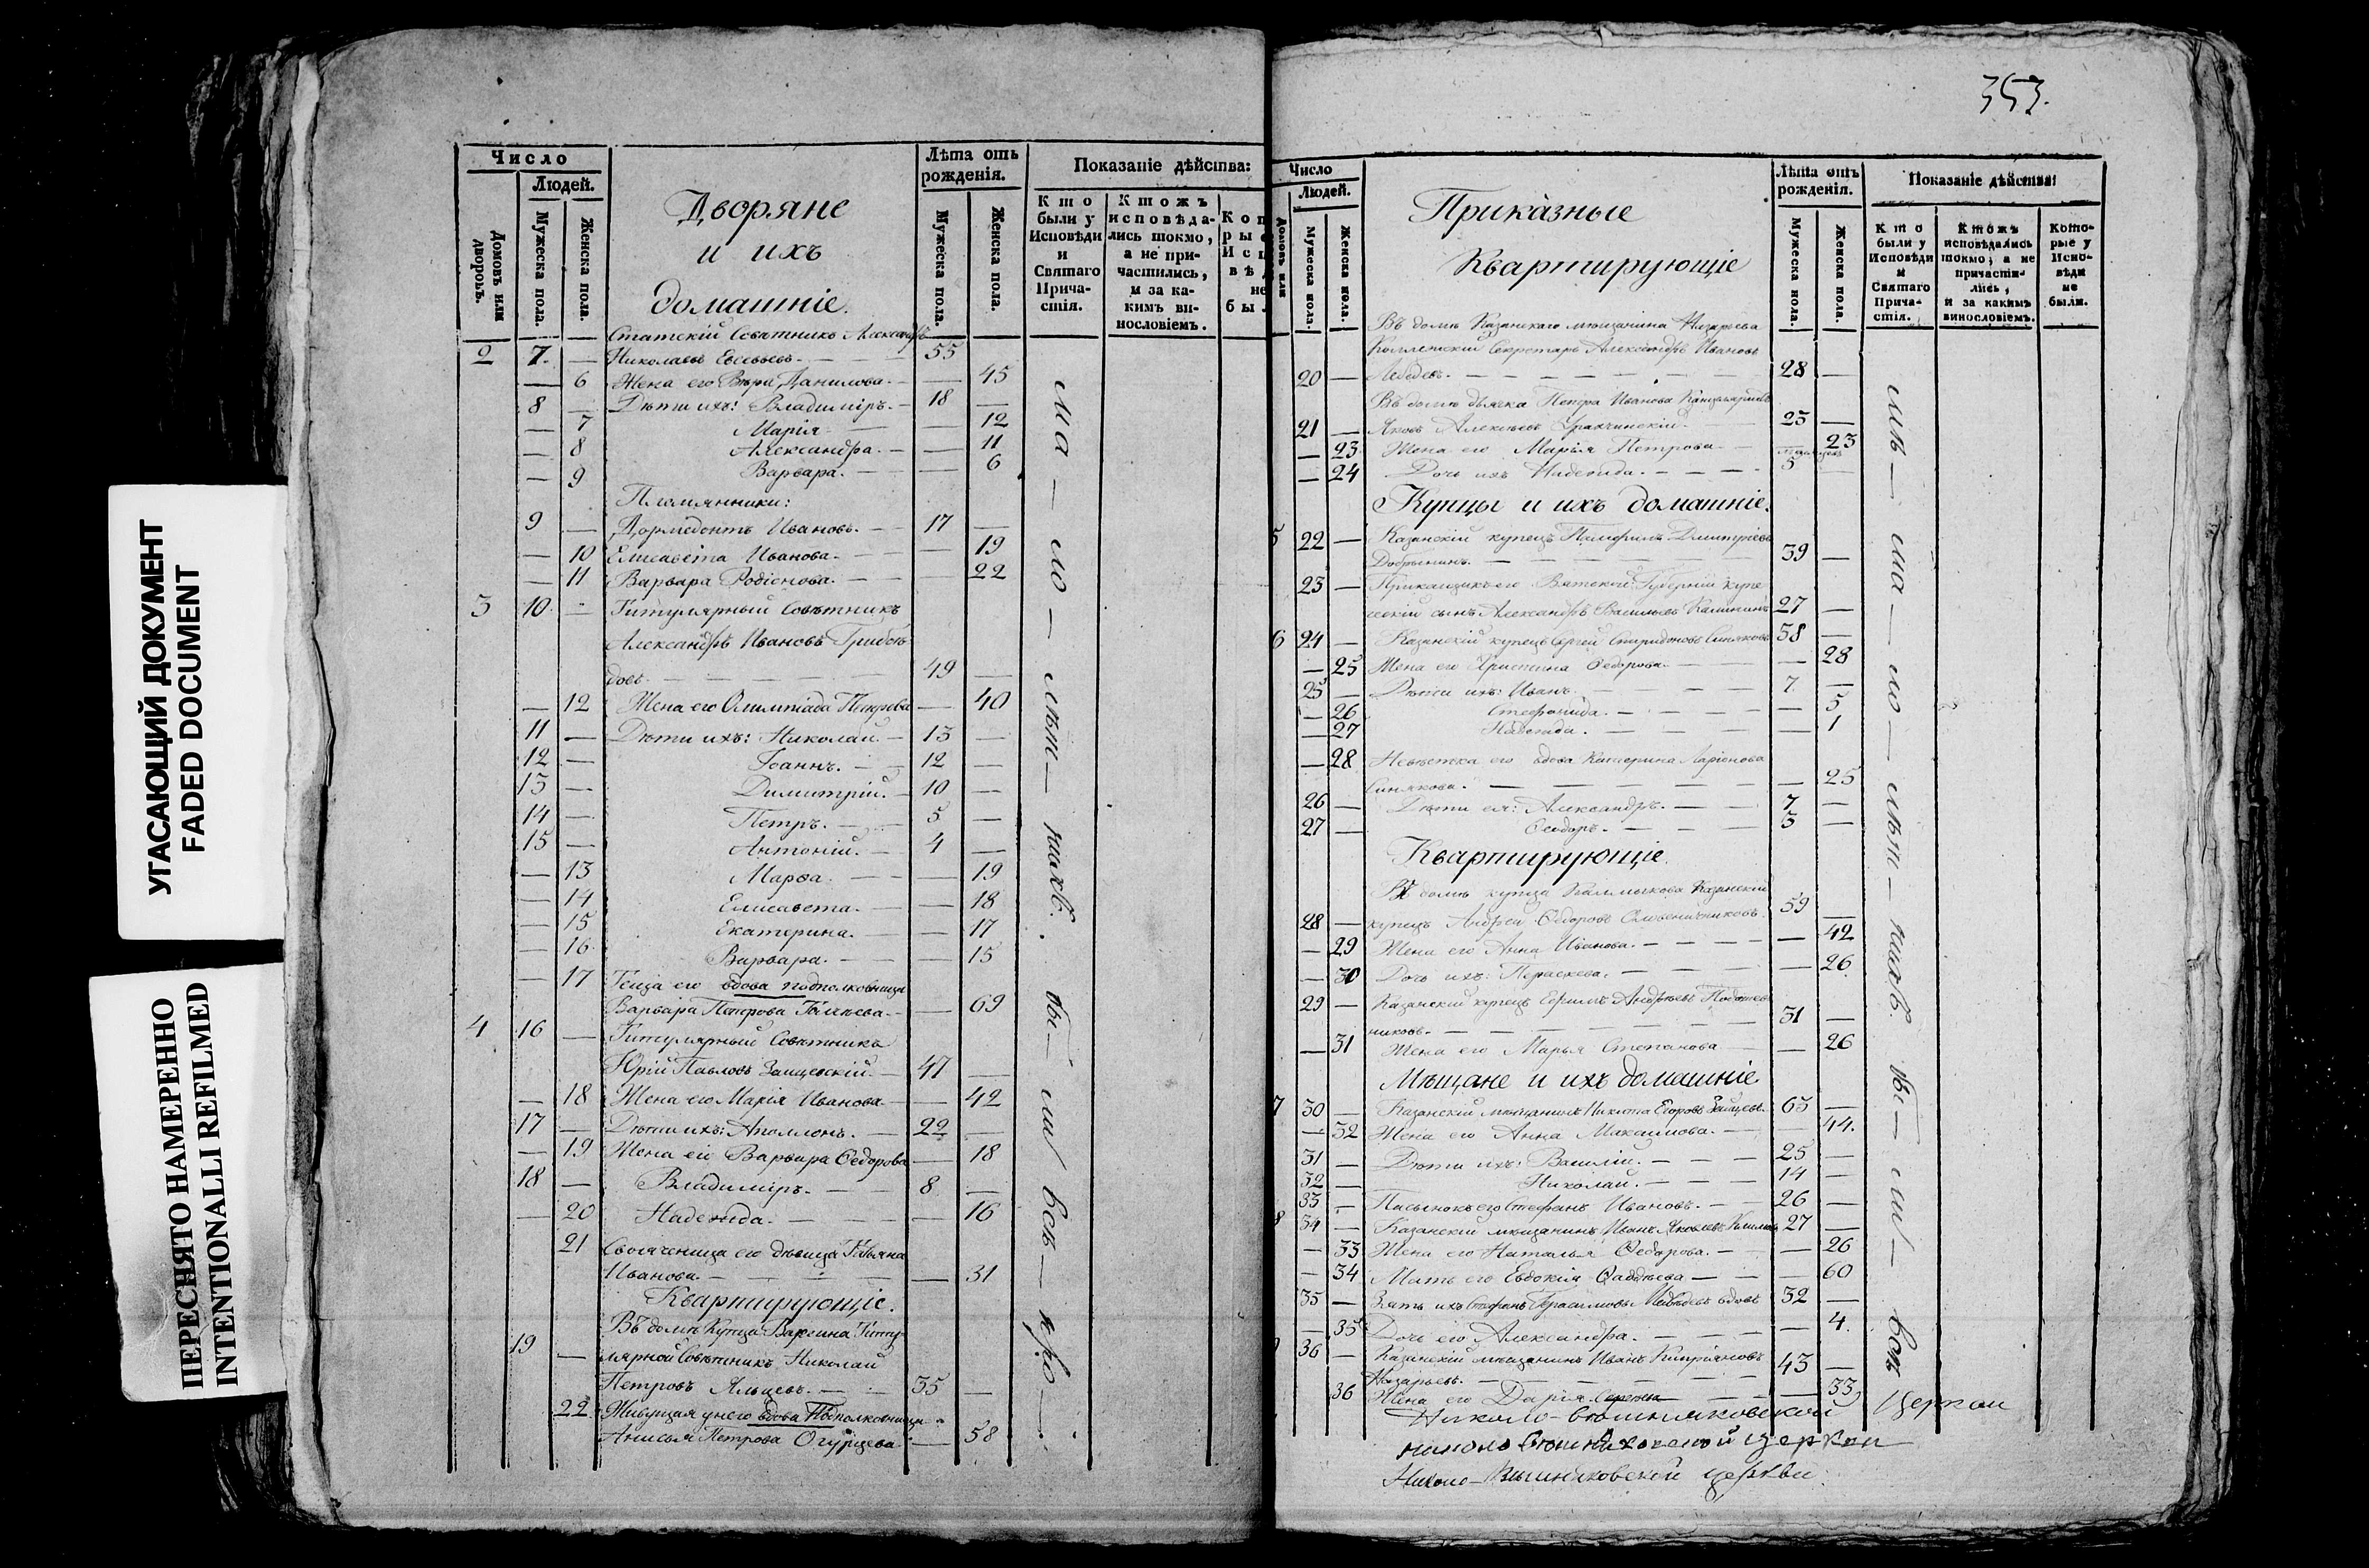 УГАСАЮЩИЙ ДОКУМЕНТ
FADED DOCUMENT
ПЕРЕСНЯТО НАМЕРЕННО
INTENTIONALLI REFILMED
Число
Людей.
Домовъ или дворовъ.
Мужеска пола.
Женска пола.
Дворяне
и ихъ
домашніе.
Лѣта отъ рожденія.
Мужеска пола.
Женска пола.
Показаніе дѣйства:
Кто были у Исповѣди и Святаго Причастія.
Ктожъ исповѣдались токмо, а не причастились, и за какимъ винословіемъ.
Статскій Совѣтникъ Александръ
2 7. — Николаевъ Евсевьевъ. — 55
— 6 Жена его Вѣра Данилова. — — 45
8 — Дѣти ихъ: Владиміръ. — 18 —
— 7 Марія — — 12
— 8 Александра. — — 11
— 9 Варвара. — — 6
Племянники:
9 — Дормедонтъ Ивановъ. — 17 —
— 10 Елисавета Иванова. — — 19
— 11 Варвара Родіонова. — — 22
3 10. — Титулярный Совѣтникъ
Александръ Ивановъ Грибоѣ
довъ. — 49 —
— 12 Жена его Олимпіада Петрова — 40
11 — Дѣти ихъ: Николай. — 13 —
12 — Іоаннъ. — 12 —
13 — Димитрій. — 10 —
14 — Петръ. — 5 —
15 — Антоній. — 4 —
— 13 Марѳа. — — 19
— 14 Елисавета. — — 18
— 15 Екатерина. — — 17
— 16 Варвара. — — 15
— 17 Теща его вдова подполковница
Варвара Петрова — 69
4 16 — Титулярный Совѣтникъ
Юрій Павловъ — 47 —
— 18 Жена его Марія Иванова — — 42
17 — Дѣти ихъ: Аполлонъ. — 22 —
— 19 Жена его Варвара Ѳедорова — 18
18 — Владиміръ. — 8 —
— 20 Надежда. — — 16
21 Свояченица его дѣвица Татьяна
Иванова. — — 31
Квартирующіе.
Въ домѣ Купца Титу-
19 — лярной Совѣтникъ Николай
Петровъ — 35 —
22. Живущая у него вдова Подполковница
Анисья Петрова Огурцева — 58
353.
Число
Людей.
Мужеска пола.
Женска пола.
Приказные
Квартирующіе
Лѣта отъ рожденія.
Мужеска пола.
Женска пола.
Показаніе дѣйства:
Кто были у Исповѣди и Святаго Причастія.
Ктожъ исповѣдались токмо, а не причастились, и за какимъ винословіемъ.
Которые у Исповѣди не были.
Въ домѣ Казанскаго мѣщанина Назарьева
Коллежскій Секретарь Александръ Ивановъ
20 — Лебедевъ. — 28 —
Въ домѣ дьячка Петра Иванова
21 — Яковъ Алексѣевъ — 25 —
— 23 Жена его Марья Петрова — 23
— 24 Дочь ихъ Надежда. — 5
Купцы и ихъ домашніе.
5 22 — Казанскій купецъ Памфилъ Дмитріевъ
Добрынинъ. — 39 —
23 — Прикащикъ его Вятской Губерніи купе
ческій сынъ Александръ Васильевъ Калининъ 27 —
6 24 — Казанскій купецъ Сергѣй Спиридоновъ Синяковъ 58 —
— 25 Жена его Христина Ѳедорова. — — 28
25 — Дѣти ихъ: Иванъ. — 7. —
— 26 Стефанида. — — 5
— 27 Надежда. — — 1
— 28 Невѣстка его вдова Катерина Ларіонова
Синякова. — — 25
26 — Дѣти ея: Александръ. — 7 —
27 — Ѳеодоръ. — 3 —
Квартирующіе.
Въ домѣ купца Калмыкова Казанскій
28 — купецъ Андрей Ѳедоровъ — 59 —
— 29 Жена его Анна Иванова. — — 42
— 30 Дочь ихъ: Параскева. — — 26
29 — Казанскій купецъ Ефимъ Андрѣевъ
никовъ. — 31 —
— 31 Жена его Марья Степанова — 26
Мѣщане и ихъ домашніе
7 30 — Казанскій мѣщанинъ Никита Егоровъ Зайцевъ. 65 —
— 32 Жена его Анна Максимова. — — 44.
31 — Дѣти ихъ: Василій. — 25 —
32 — Николай. — 14 —
33 — Пасынокъ его Стефанъ Ивановъ. — 26 —
8 34 — Казанскій мѣщанинъ Иванъ Яковлевъ 27 —
— 33 Жена его Наталья Ѳедорова. — — 26
— 34 Мать его Евдокія Ѳаддѣева — — 60
35 — Зять ихъ Стефанъ Герасимовъ вдовъ 32 —
— 35 Дочь его Александра. — — 4.
36 — Казанскій мѣщанинъ Иванъ Кипріяновъ
Назарьевъ. — 43 —
36 Жена его Дарія — — 33
церкви
церкви
церкви.